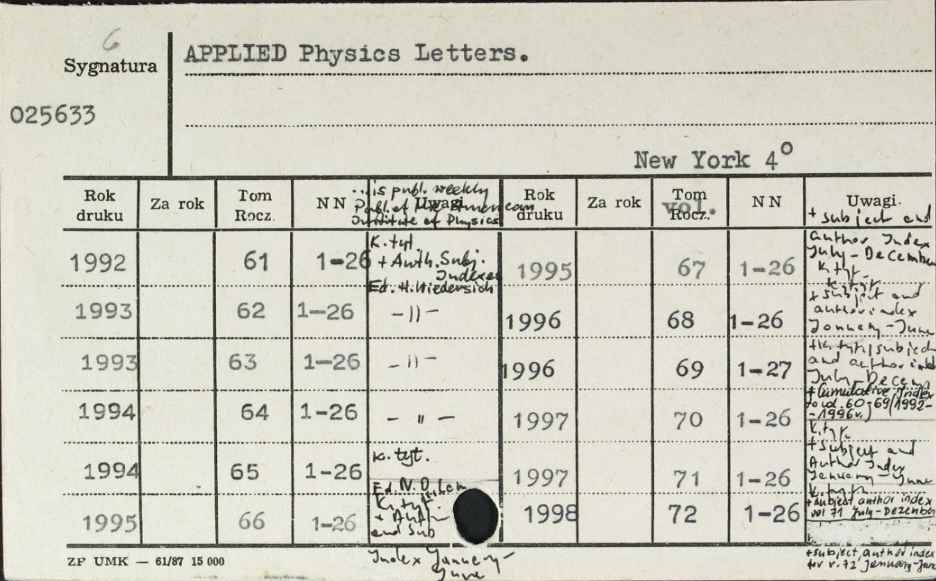 6
Sygnatura
APPLIED Physics Letters.
025633
New York 4°
Rok druku Za rok Tom Rocz. NN Uwagi
...is publ. weekly
Publ. of the American
Institute of Physics
Rok druku Za rok Tom Rocz. vol. NN Uwagi.
1992 61 1-26 K. tyt.
+ Auth. Subj.
Indexes
Ed. H. Wiedersich
1993 62 1-26 -"-
1993 63 1-26 -"-
1994 64 1-26 - " -
1994 65 1-26 K. tyt.
1995 66 1-26 Ed. N.D.
K. tyt.
+ Auth
and Sub
Index January-
June
1995 67 1-26 + subject and
author Index
July-December
K. tyt.
1996 68 1-26 K. tyt.
+ subject and
author index
January-June
1996 69 1-27 + K. tyt. subject
and author
July
+ Cumulative Index
vol. 60-69 (1992-
-1996r.)
1997 70 1-26 K. tyt.
+ subject and
Author Index
January-June
1997 71 1-26 K. tyt.
+ subject author index
vol 71 July-Dezember
1998 72 1-26
+ subject, author index
for v. 72 January-June
ZP UMK — 61/87 15 000